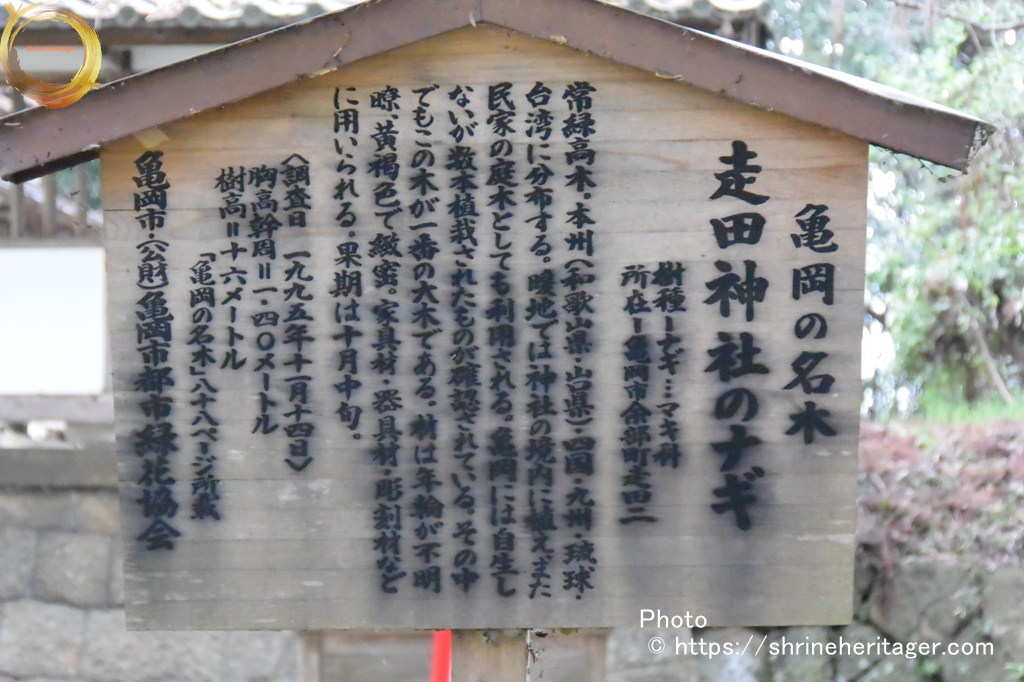 亀岡の名木
走田神社のナギ
樹種ーナギ…マキ科
所在ー亀岡市余部町走田二
常緑高木。本州(和歌山県・山口県)四国・九州・琉球・
台湾に分布する。暖地では神社の境内に植えまた
民家の庭木としても利用される。亀岡には自生し
ないが数本植栽されたものが確認されている。その中
でもこの木が一番の大木である。材は年輪が不明
瞭、黄褐色で緻密。家具材・器具材・彫刻材など
に用いられる。果期は十月中旬。
〈調査日 一九九五年十一月十四日〉
胸高幹周＝一・四〇メートル
樹高＝十六メートル
「亀岡の名木」八十八ページ所載
亀岡市(公財)亀岡市都市緑花協会
Photo
© https://shrineheritager.com